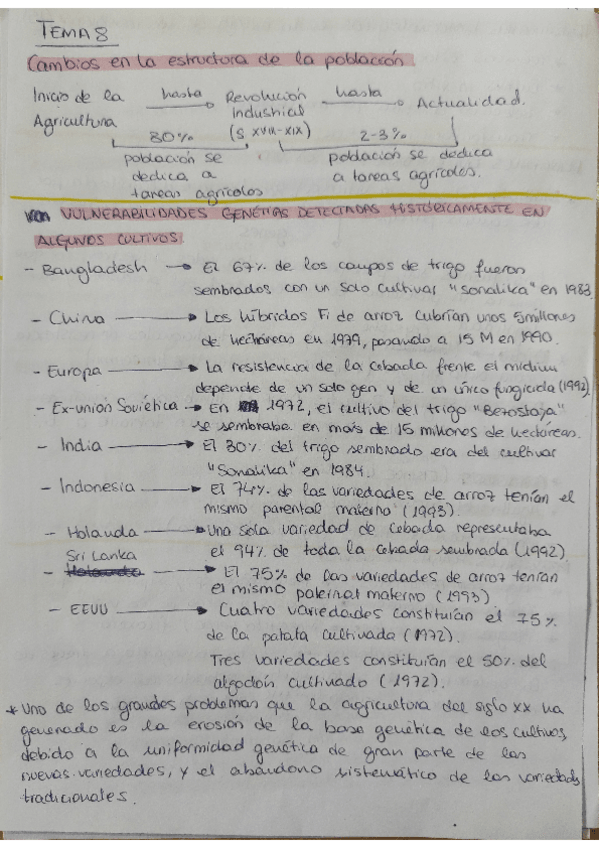 TEMA 8
Cambios en la estructura de la población
Inicio de la hasta Revolución hasta Actualidad.
Agricultura Industrial
(S XVIII-XIX)
80% 2-3%
población se población se dedica
dedica a a tareas agrícolas.
tareas agrícolas
VULNERABILIDADES GENÉTIAS DETECTADAS HISTÓRICAMENTE EN
ALGUNOS CULTIVOS:
- Bangladesh → El 67% de los campos de trigo fueron
sembrados con un solo cultivar "Sonalika" en 1983
- China → Los híbridos F1 de arroz cubrían unos 5 millones
de hectáreas en 1979, pasando a 15 M en 1990.
- Europa → La resistencia de la cebada frente el mildium
depende de un solo gen y de un único fungicida (1992)
- Ex-unión Soviética → En 1972, el cultivo del trigo "Bezostaja"
se sembraba en más de 15 millones de hectáreas.
- India → El 30% del trigo sembrado era del cultivar
"Sonalika" en 1984.
- Indonesia → El 74% de las variedades de arroz tenían el
mismo parental materno (1993).
- Holanda → Una sola variedad de cebada representaba
el 94% de toda la cebada sembrada (1992)
- Sri Lanka → El 75% de las variedades de arroz tenían
el mismo materno (1993)
- EEUU → Cuatro variedades constituían el 75%
de la patata cultivada (1972).
Tres variedades constituían el 50% del
algodón cultivado (1972).
* Uno de los grandes problemas que la agricultura del siglo XX ha
generado es la erosión de la base genética de los cultivos,
debido a la uniformidad genética de gran parte de las
nuevas variedades, y el abandono sistemático de las variedades
tradicionales.